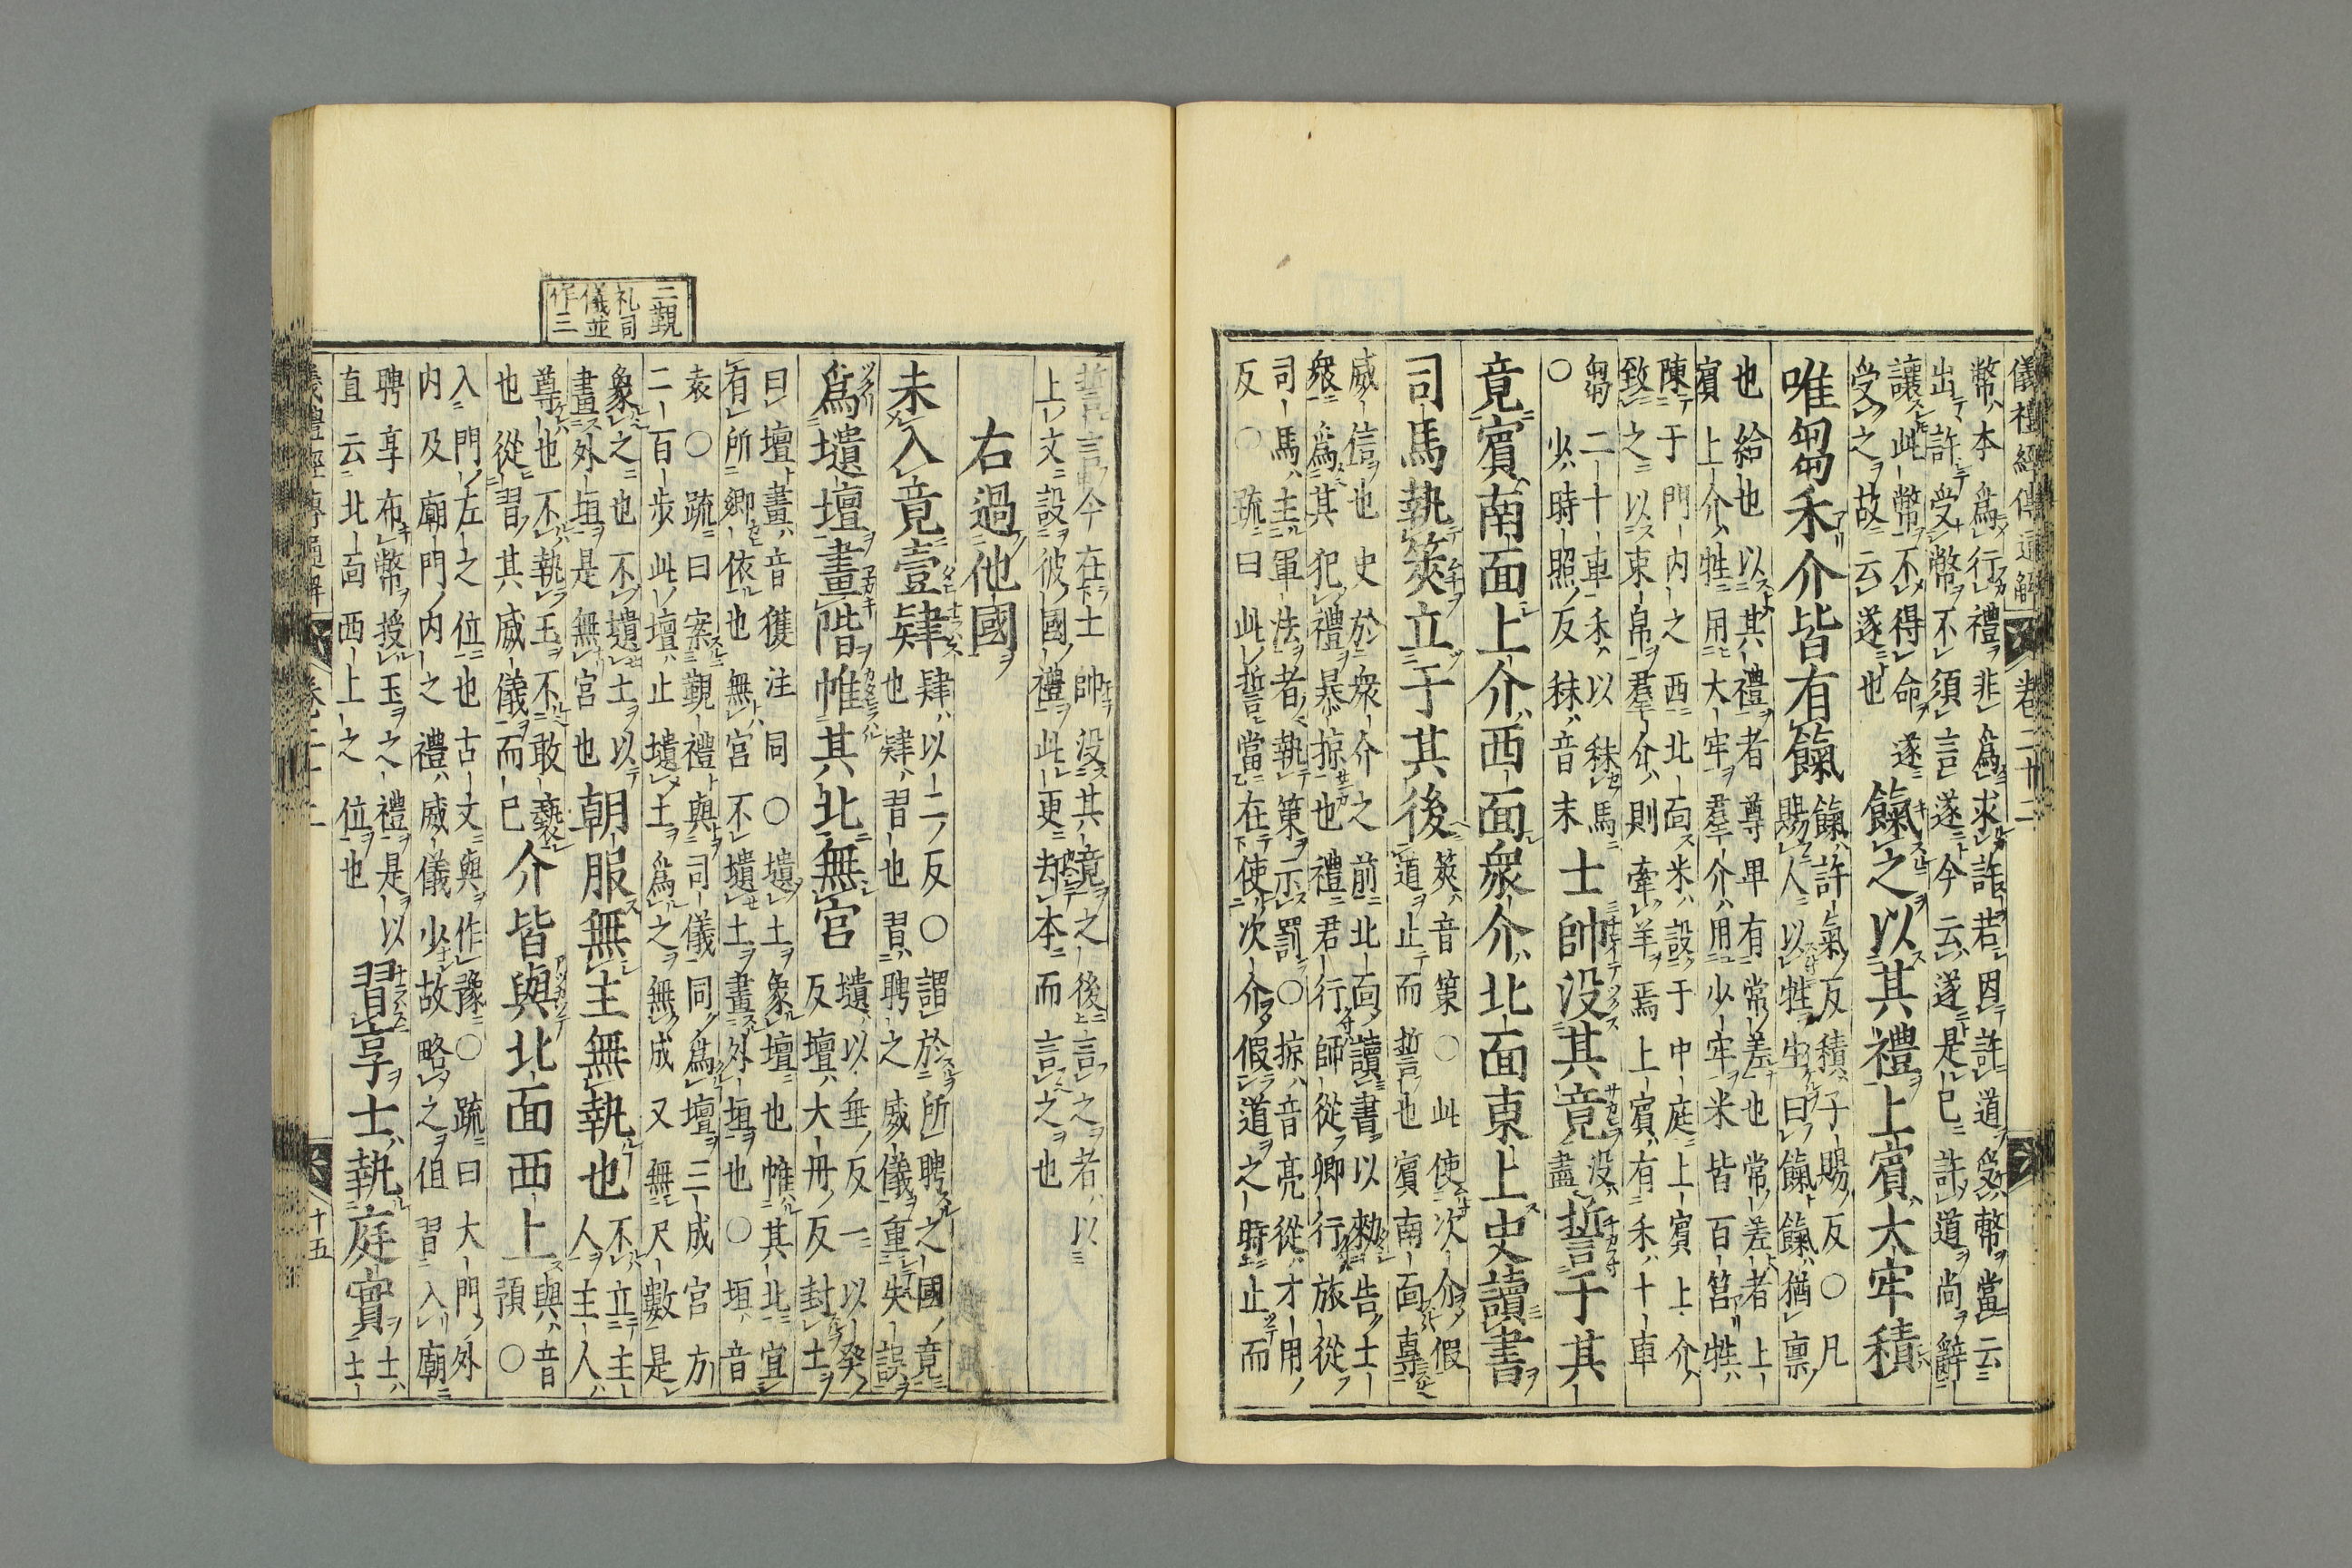 儀禮經傳通解 卷二十二
幣本爲行禮非爲求許若因許道受幣當云
出許受幣不須言遂今云遂是已許道尚辭
讓此幣不得命遂
受之故云遂也
餼之以其禮上賓大牢積
唯芻禾介皆有餼
餼許氣反積子賜反○凡
賜人以牲生曰餼餼猶稟
也給也以其禮者尊卑有常差也常差者上
賓上介牲用大牢羣介用少牢米皆百筥牲
陳于門内之西北面米設于中庭上賓上介
致之以束帛羣介則牽羊焉上賓有禾十車
芻二十車禾以秣馬
○少時照反秣音末
士帥没其竟
没
盡
誓于其
竟賓南面上介西面衆介北面東上史讀書
司馬執筴立于其後
筴音策○此使次介假
道止而誓也賓南面專
威信也史於衆介之前北面讀書以勑告士
衆爲其犯禮暴掠也禮君行師從卿行旅從
司馬主軍法者執策示罰○掠音亮從才用
反○疏曰此誓當在使次介假道之時止而
誓言今在士帥没其竟之後言之者以
上文設彼國禮此更却本而言之也
右過他國
未入竟壹肄
肄以二反○謂於所聘之國竟
也肄習也習聘之威儀重失誤
爲壝壇畫階帷其北無宮
壝以垂反一以癸
反壇大丹反封土
曰壇畫音獲注同○壝土象壇也帷其北宜
有所郷依也無宮不壝土畫外垣也○垣音
袁○疏曰案覲禮與司儀同爲壇三成宮方
二百步此壇止壝土爲之無成又無尺數是
象之也不壝土以
畫外垣是無宮也
朝服無主無執也
不立主
人主人
尊也不執玉不敢褻
也從習其威儀而已
介皆與北面西上
與音
預○
入門左之位也古文與作豫○疏曰大門外
内及廟門内之禮威儀少故略之但習入廟
聘享布幣授玉之禮是以
直云北面西上之位也
習享士執庭實
士
士
卷二十二
十五
二覲
礼司
儀並
作三